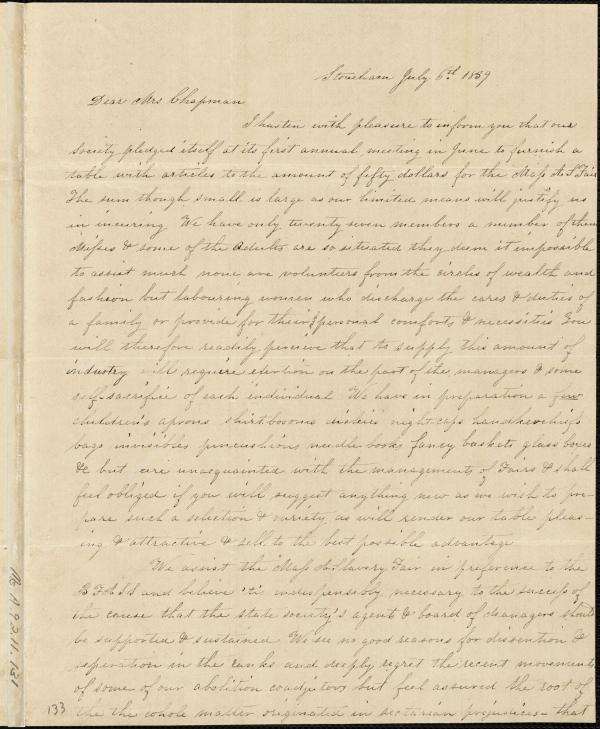 Stoneham July 6th 1839
Dear Mrs Chapman
I hasten with pleasure to inform you that our
society pledged itself at its first annual meeting in June to furnish a
table with articles to the amount of fifty dollars for the Mass A S Fair
The sum though small is large as our limited means will justify us
in incuring. We have only twenty seven members a number of them
Misses & some of the Adults are so situated they deem it impossible
to assist much none are volunteers from the circles of wealth and
fashion but labouring women who discharge the cares & duties of
a family or provide for their personal comforts & necessities You
will therefore readily percieve that to supply this amount of
industry will require exertion on the part of the managers & some
self-sacrifice of each individual We have in preparation a few
children's aprons shirt bosoms dickies night-caps handkerchiefs
bags invisibles pincushions needle books fancy baskets glass boxes
&c but are unacquainted with the managements of Fairs & shall
feel obliged if you will suggest anything new as we wish to pre-
pare such a selection & variety as will render our table pleas-
ing & attractive & sell to the best possible advantage
We assist the Mass A Slavery Fair in preference to the
B F A S S and believe 'tis indispensibly necessary to the success of
the cause that the state society's agent & board of Managers should
be supported & sustained We see no good reasons for dissention &
seperation in the ranks and deeply regret the recent movements
of some of our abolition coadjutors but feel assured the root of
the the whole matter originated in sectarian prejudices - that
133
Ms. A.9.2.11.131